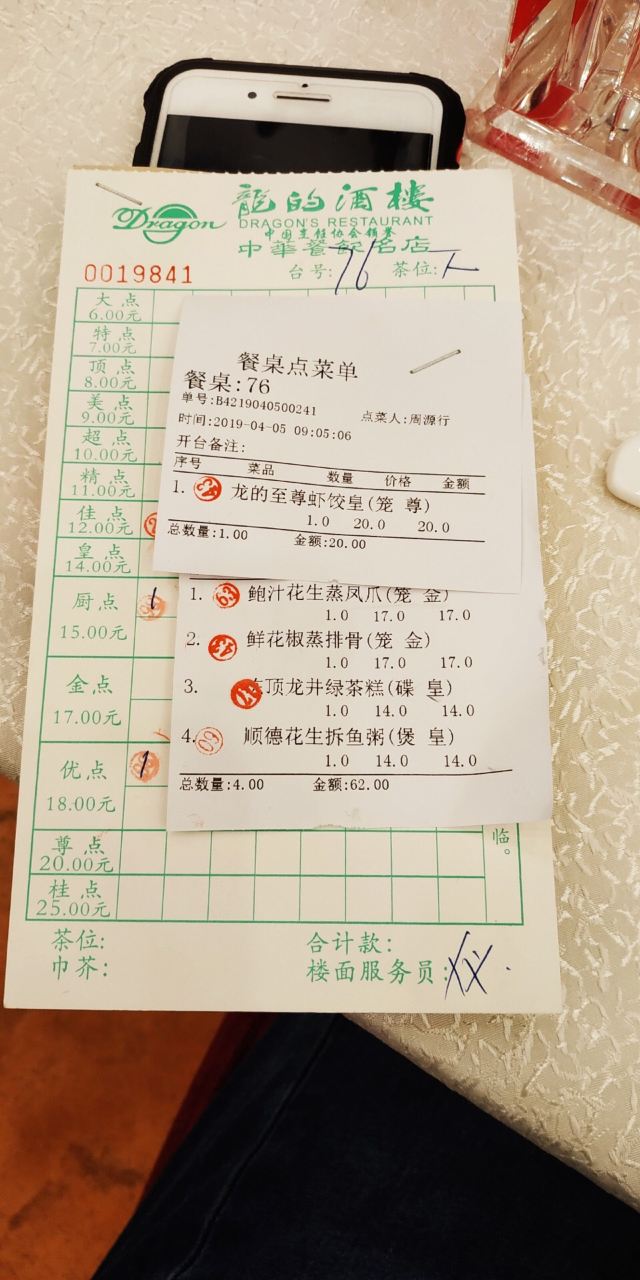 Dragon
龍的酒樓
DRAGON'S RESTAURANT
中国烹饪协会颁发
中華餐飲名店
0019841
台号:76 茶位:
大点
6.00元
特点
7.00元
顶点
8.00元
美点
9.00元
超点
10.00元
精点
11.00元
佳点
12.00元
皇点
14.00元
厨点
1
15.00元
金点
17.00元
优点
1
18.00元
尊点
20.00元
桂点
25.00元
临。
茶位:
巾芥:
合计款:
楼面服务员:
餐桌点菜单
餐桌:76
单号:B4219040500241 点菜人:周源行
时间:2019-04-05 09:05:06
开台备注:
序号 菜品 数量 价格 金额
1. 43 龙的至尊虾饺皇(笼 尊)
1.0 20.0 20.0
总数量:1.00 金额:20.00
1. 鲍汁花生蒸凤爪(笼 金)
1.0 17.0 17.0
2. 43 鲜花椒蒸排骨(笼 金)
1.0 17.0 17.0
3. 顶龙井绿茶糕(碟 皇)
1.0 14.0 14.0
4. 顺德花生拆鱼粥(煲 皇)
1.0 14.0 14.0
总数量:4.00 金额:62.00